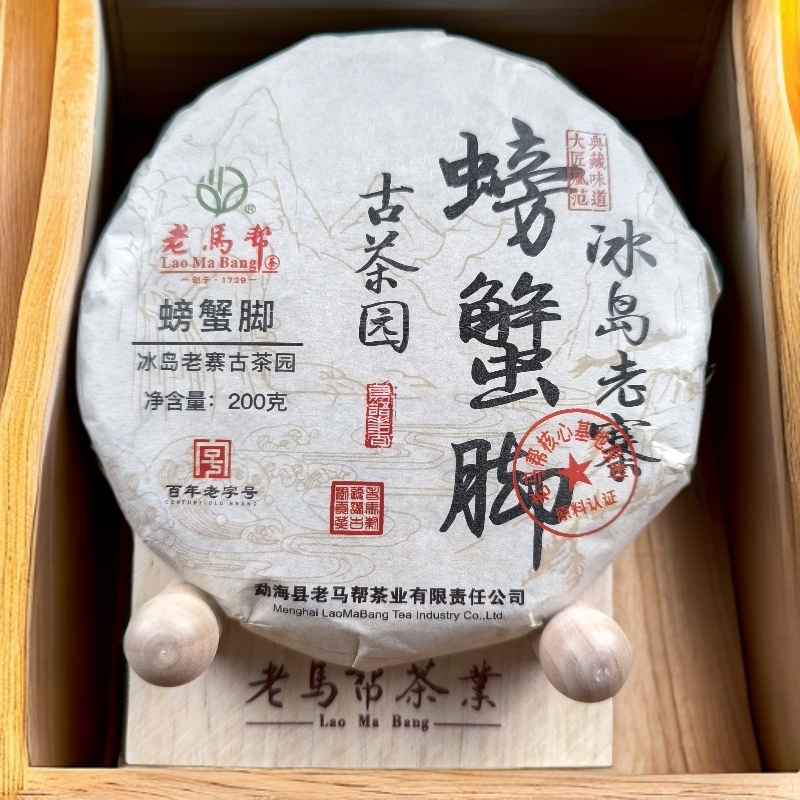 典藏味道
大匠風范
冰岛老寨
螃蟹脚
古茶园
®
老馬帮
Lao Ma Bang 茶
创于·1729
螃蟹脚
冰岛老寨古茶园
净含量：200克
百年老字号
CENTURY-OLD BRAND
原料认证
勐海县老马帮茶业有限责任公司
Menghai LaoMaBang Tea Industry Co.,Ltd.
老馬帮茶業
Lao Ma Bang